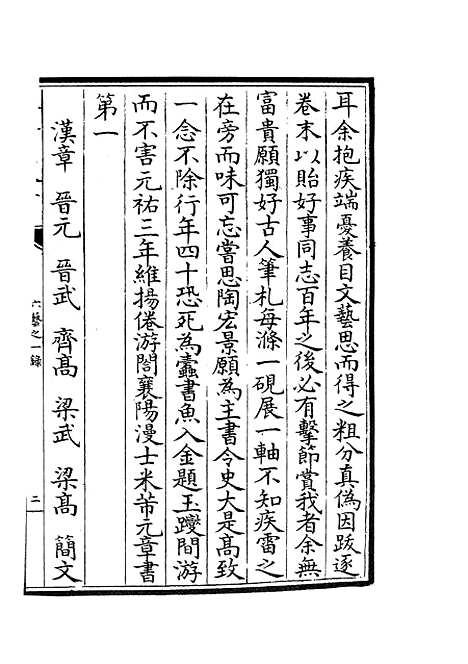 耳余抱疾端憂養目文藝思而得之粗分真偽因跋逐
卷末以貽好事同志百年之後必有擊節賞我者余無
富貴願獨好古人筆札每滌一硯展一軸不知疾雷之
在旁而味可忘嘗思陶宏景願為主書令史大是髙致
一念不除行年四十恐死為蠹書魚入金題玉躞間游
而不害元祐三年維揚倦游閣襄陽漫士米芾元章書
第一
漢章 晉元 晉武 齊髙 梁武 梁髙 簡文
六藝之一錄
二